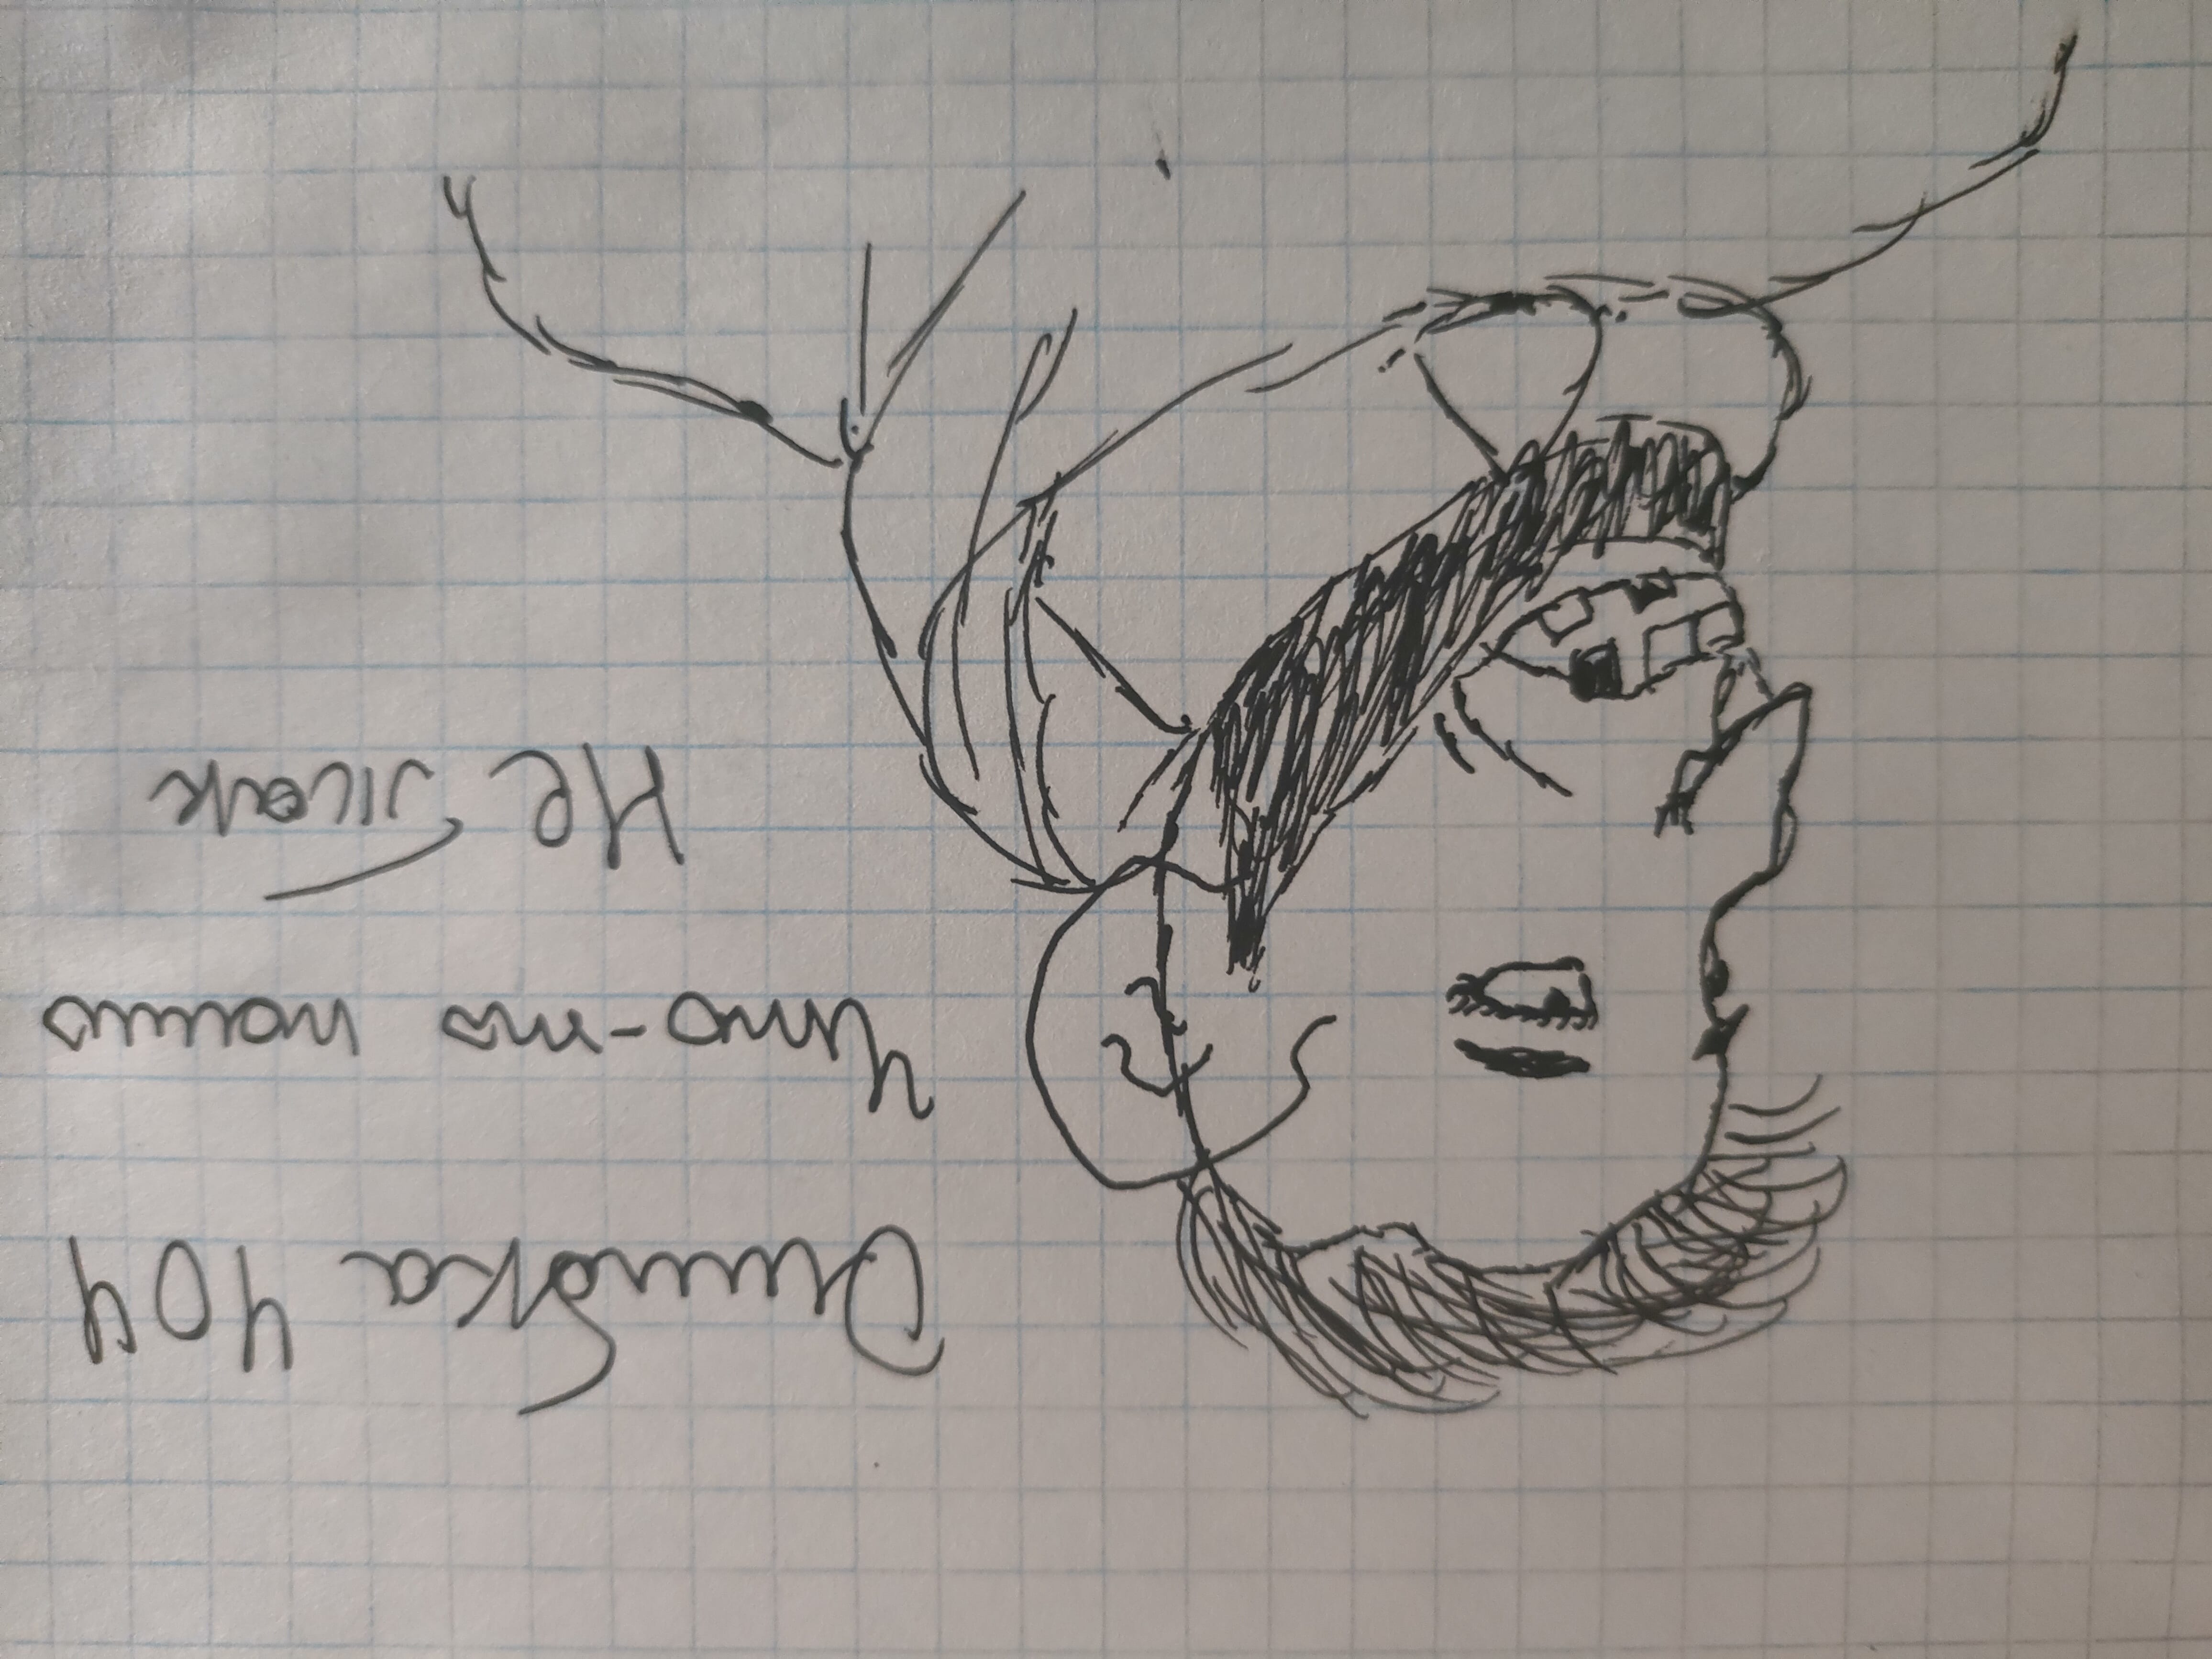 Ошибка 404
Что-то пошло
Не так